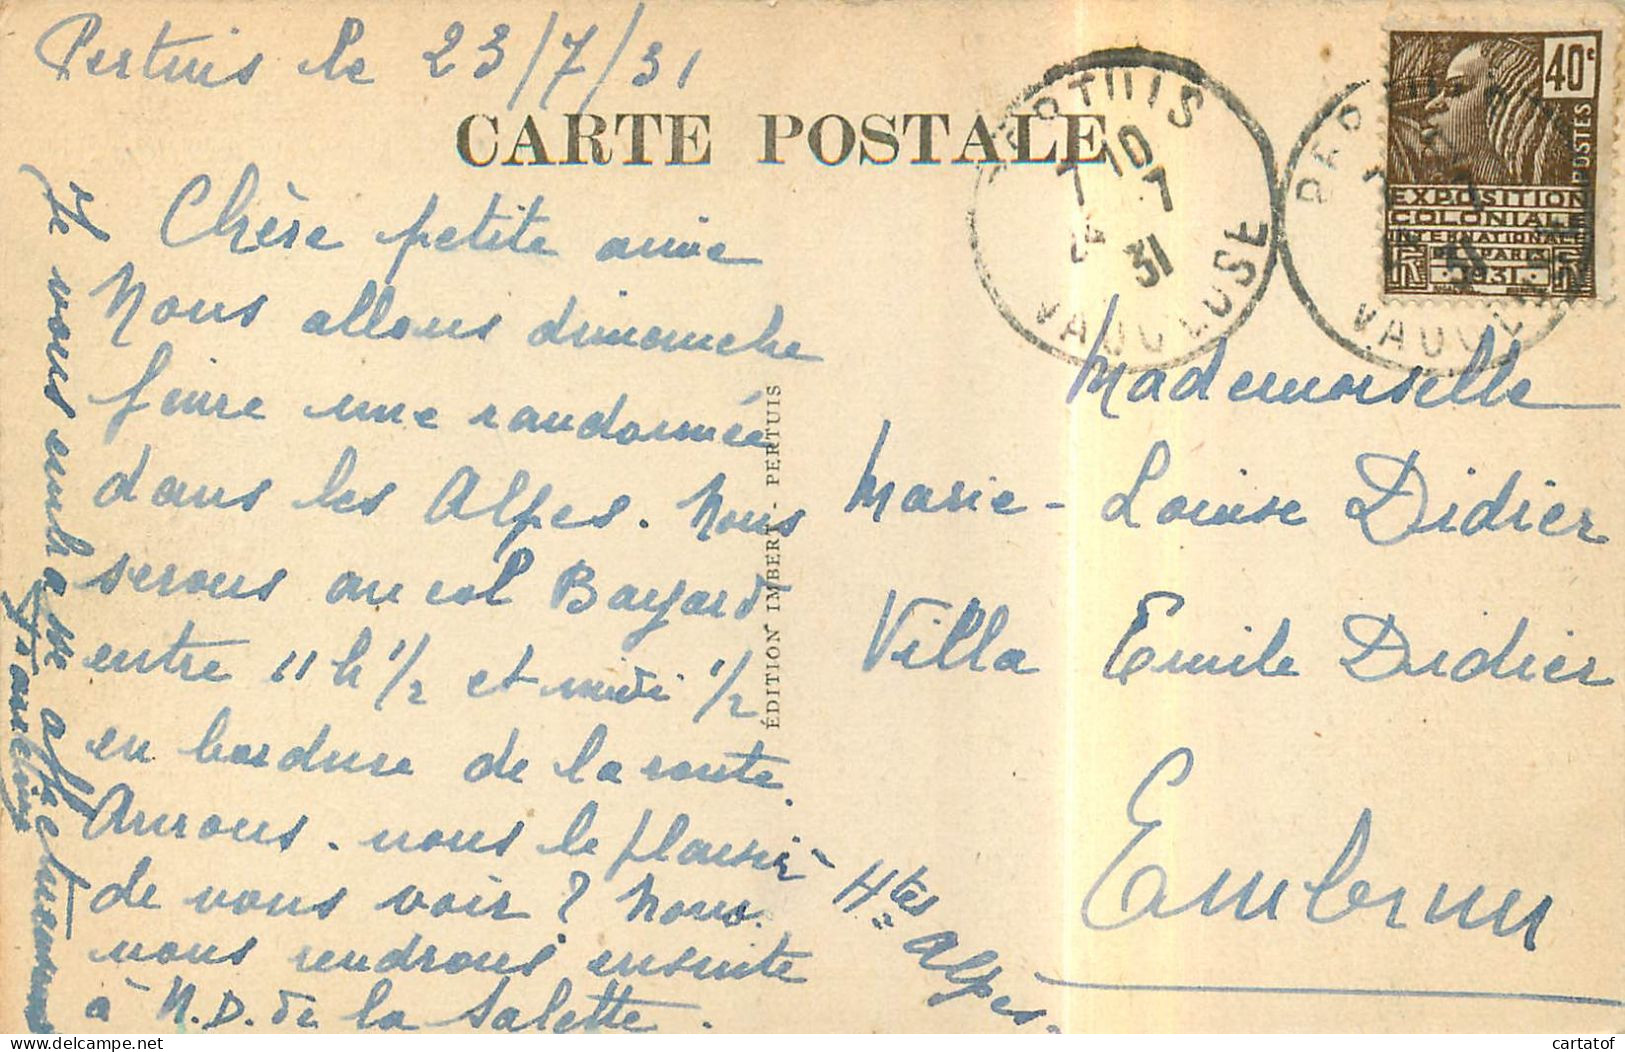 Pertuis le 23/7/31
CARTE POSTALE
Chère petite amie
Nous allons dimanche
faire une randonnée
dans les Alpes. Nous
serons au col Bayard
entre 11 h 1/2 et midi 1/2
en bordure de la route.
Aurons-nous le plaisir
de vous voir ? Nous
nous rendrons ensuite
à N.D. de la Salette.
Je vous embrasse affectueusement
ÉDITION IMBERT - PERTUIS
PERTUIS
10
7 - 7
31
VAUCLUSE
PER
VAUCL
40c
POSTES
EXPOSITION
COLONIALE
INTERNATIONALE
DE PARIS
1931
Mademoiselle
Marie-Louise Didier
Villa Emile Didier
Embrun
Htes Alpes.
cartatof